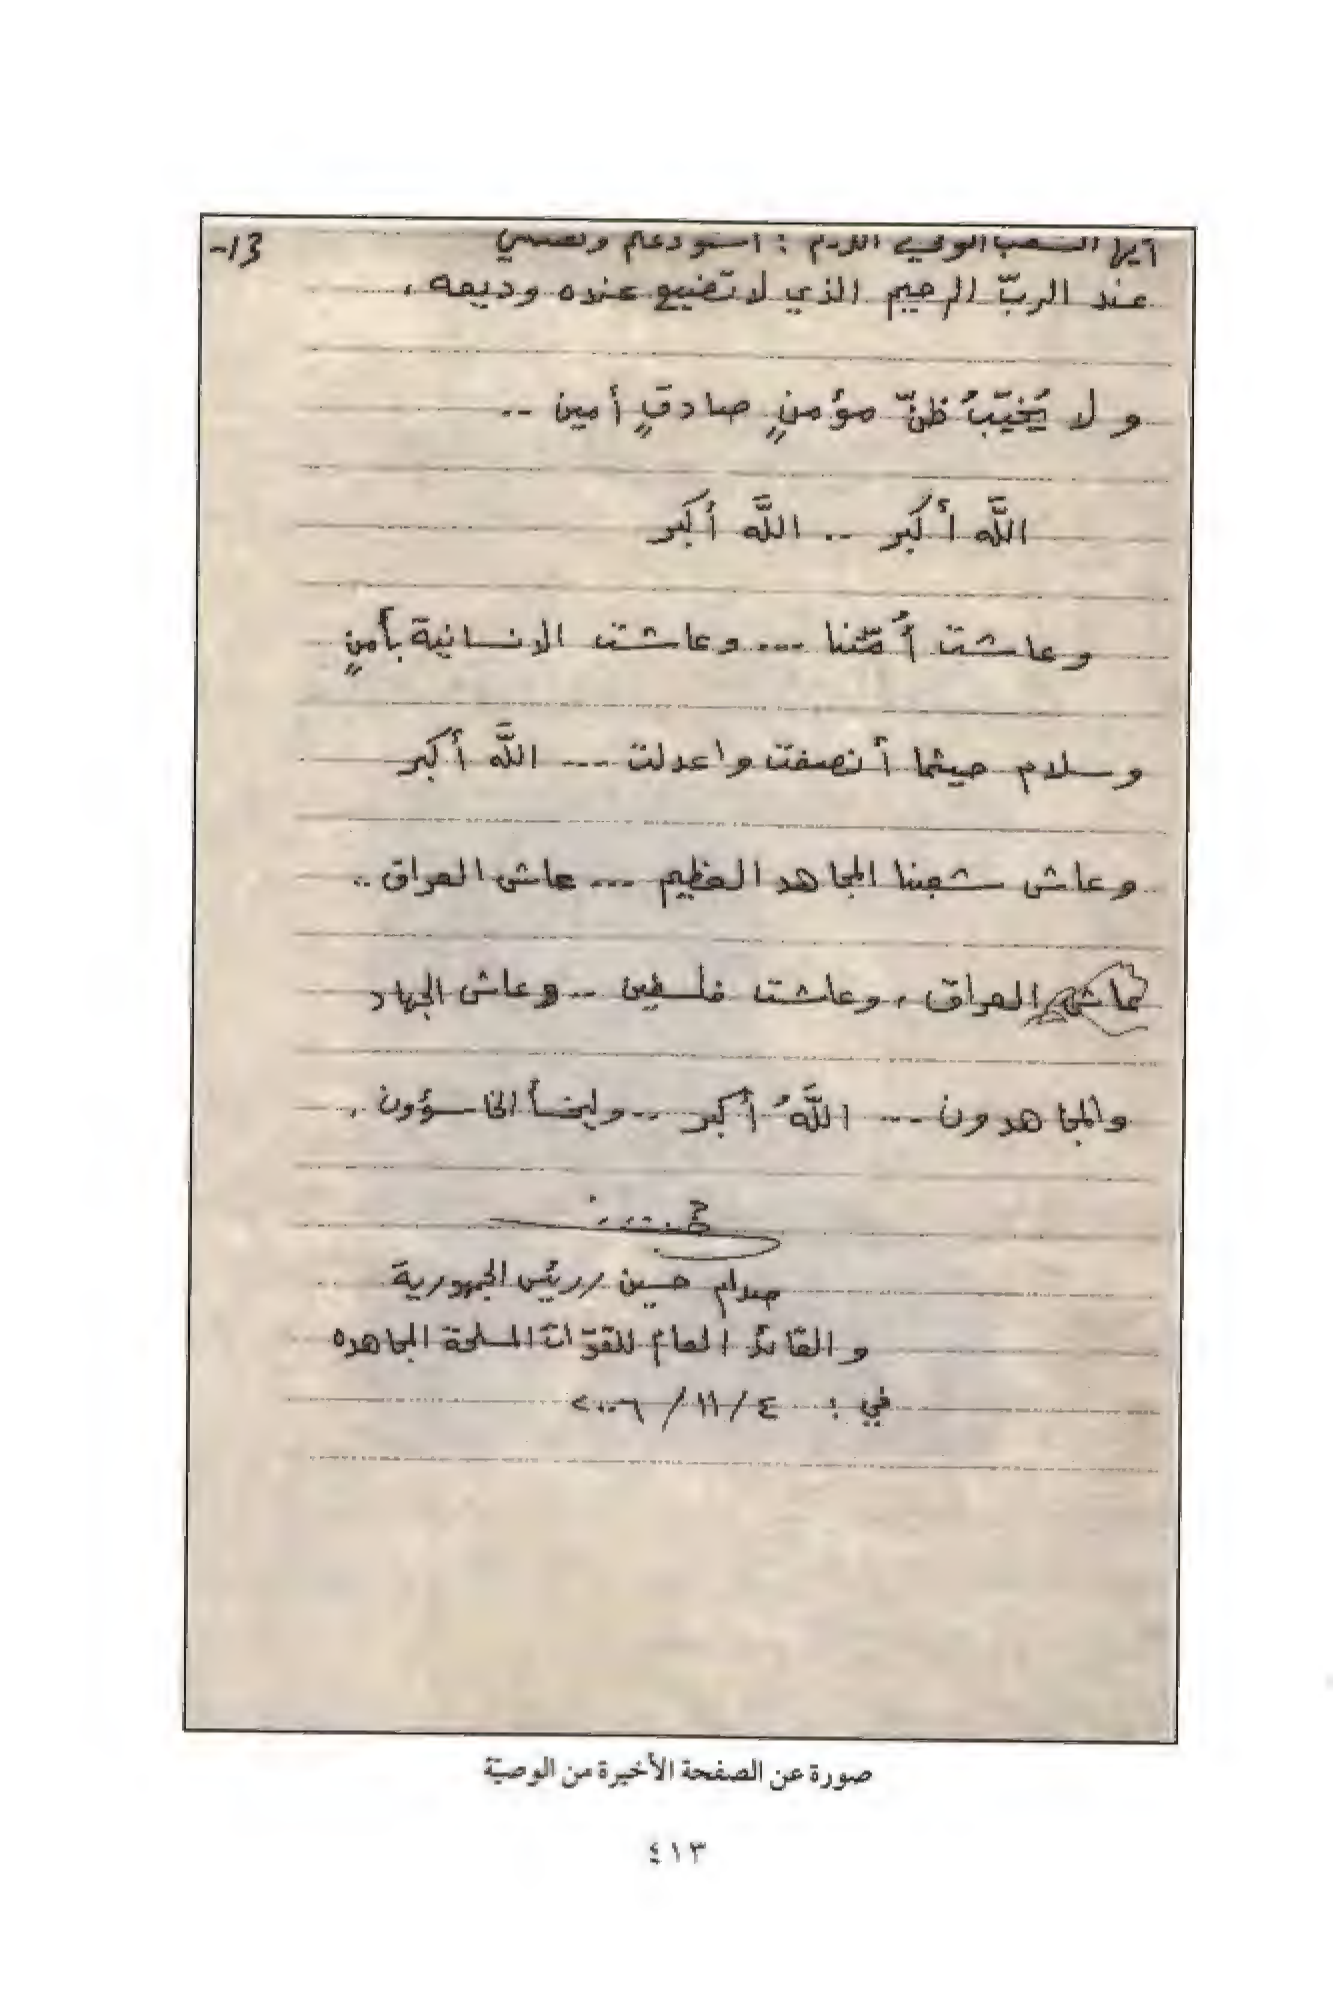 أيها الشعب الوفي الكريم : استودعكم ونفسي
13-
عند الربّ الرحيم الذي لا تضيع عنده وديعه ،
ولا يُخيّبُ ظنّ مؤمنٍ صادقٍ أمين ..
اللَّه أكبر .. اللَّه أكبر
وعاشت أُمّتنا ... وعاشت الانسانية بأمنٍ
وسلام حيثما أنصفت واعدلت ... اللَّه أكبر
وعاش شعبنا المجاهد العظيم ... عاش العراق ..
عاش العراق ، وعاشت فلسطين .. وعاش الجهاد
والمجاهدون ... اللَّهُ أكبر .. وليخسأ الخاسؤون .
صدام حسين / رئيس الجمهورية
والقائد العام للقوّات المسلحة المجاهده
في : ٤ / ١١ / ٢٠٠٦
صورة عن الصفحة الأخيرة من الوصيّة
٤١٣